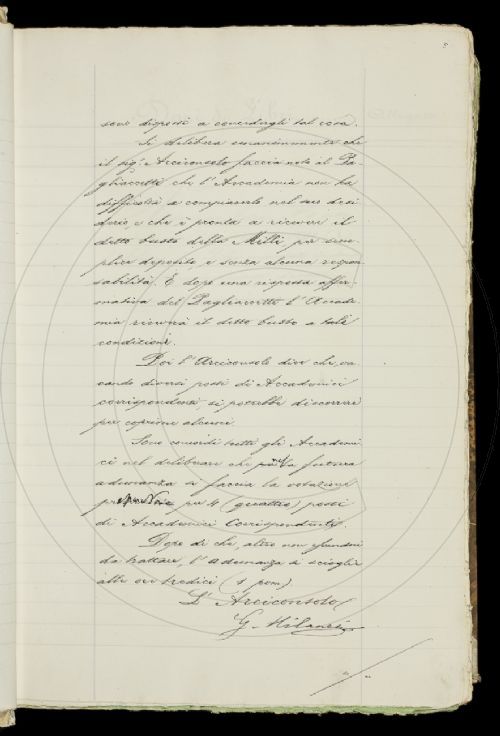 5
sono disposti a concedergli tal cosa.
Si delibera unanimemente che
il sig.r Arciconsolo faccia noto al Pa-
gliaccetti che l'Accademia non ha
difficoltà a compiacerlo nel suo desi-
derio, e che è pronta a ricevere il
detto busto della Milli per sem-
plice deposito, e senza alcuna respon-
sabilità. E dopo una risposta affer-
mativa del Pagliaccetti l'Accade-
mia riceverà il detto busto a tali
condizioni.
Poi l'Arciconsolo dice che, va-
cando diversi posti di Accademici
corrispondenti, si potrebbe discorrere
per coprirne alcuni.
Sono concordi tutti gli Accademi-
ci nel deliberare che nella futura
adunanza si faccia la votazione
per 4 (quattro) posti
di Accademici Corrispondenti.
Dopo di che, altro non essendovi
da trattare, l'adunanza si scioglie
alle ore tredici (1 pom.)
L'Arciconsolo
G. Milanesi